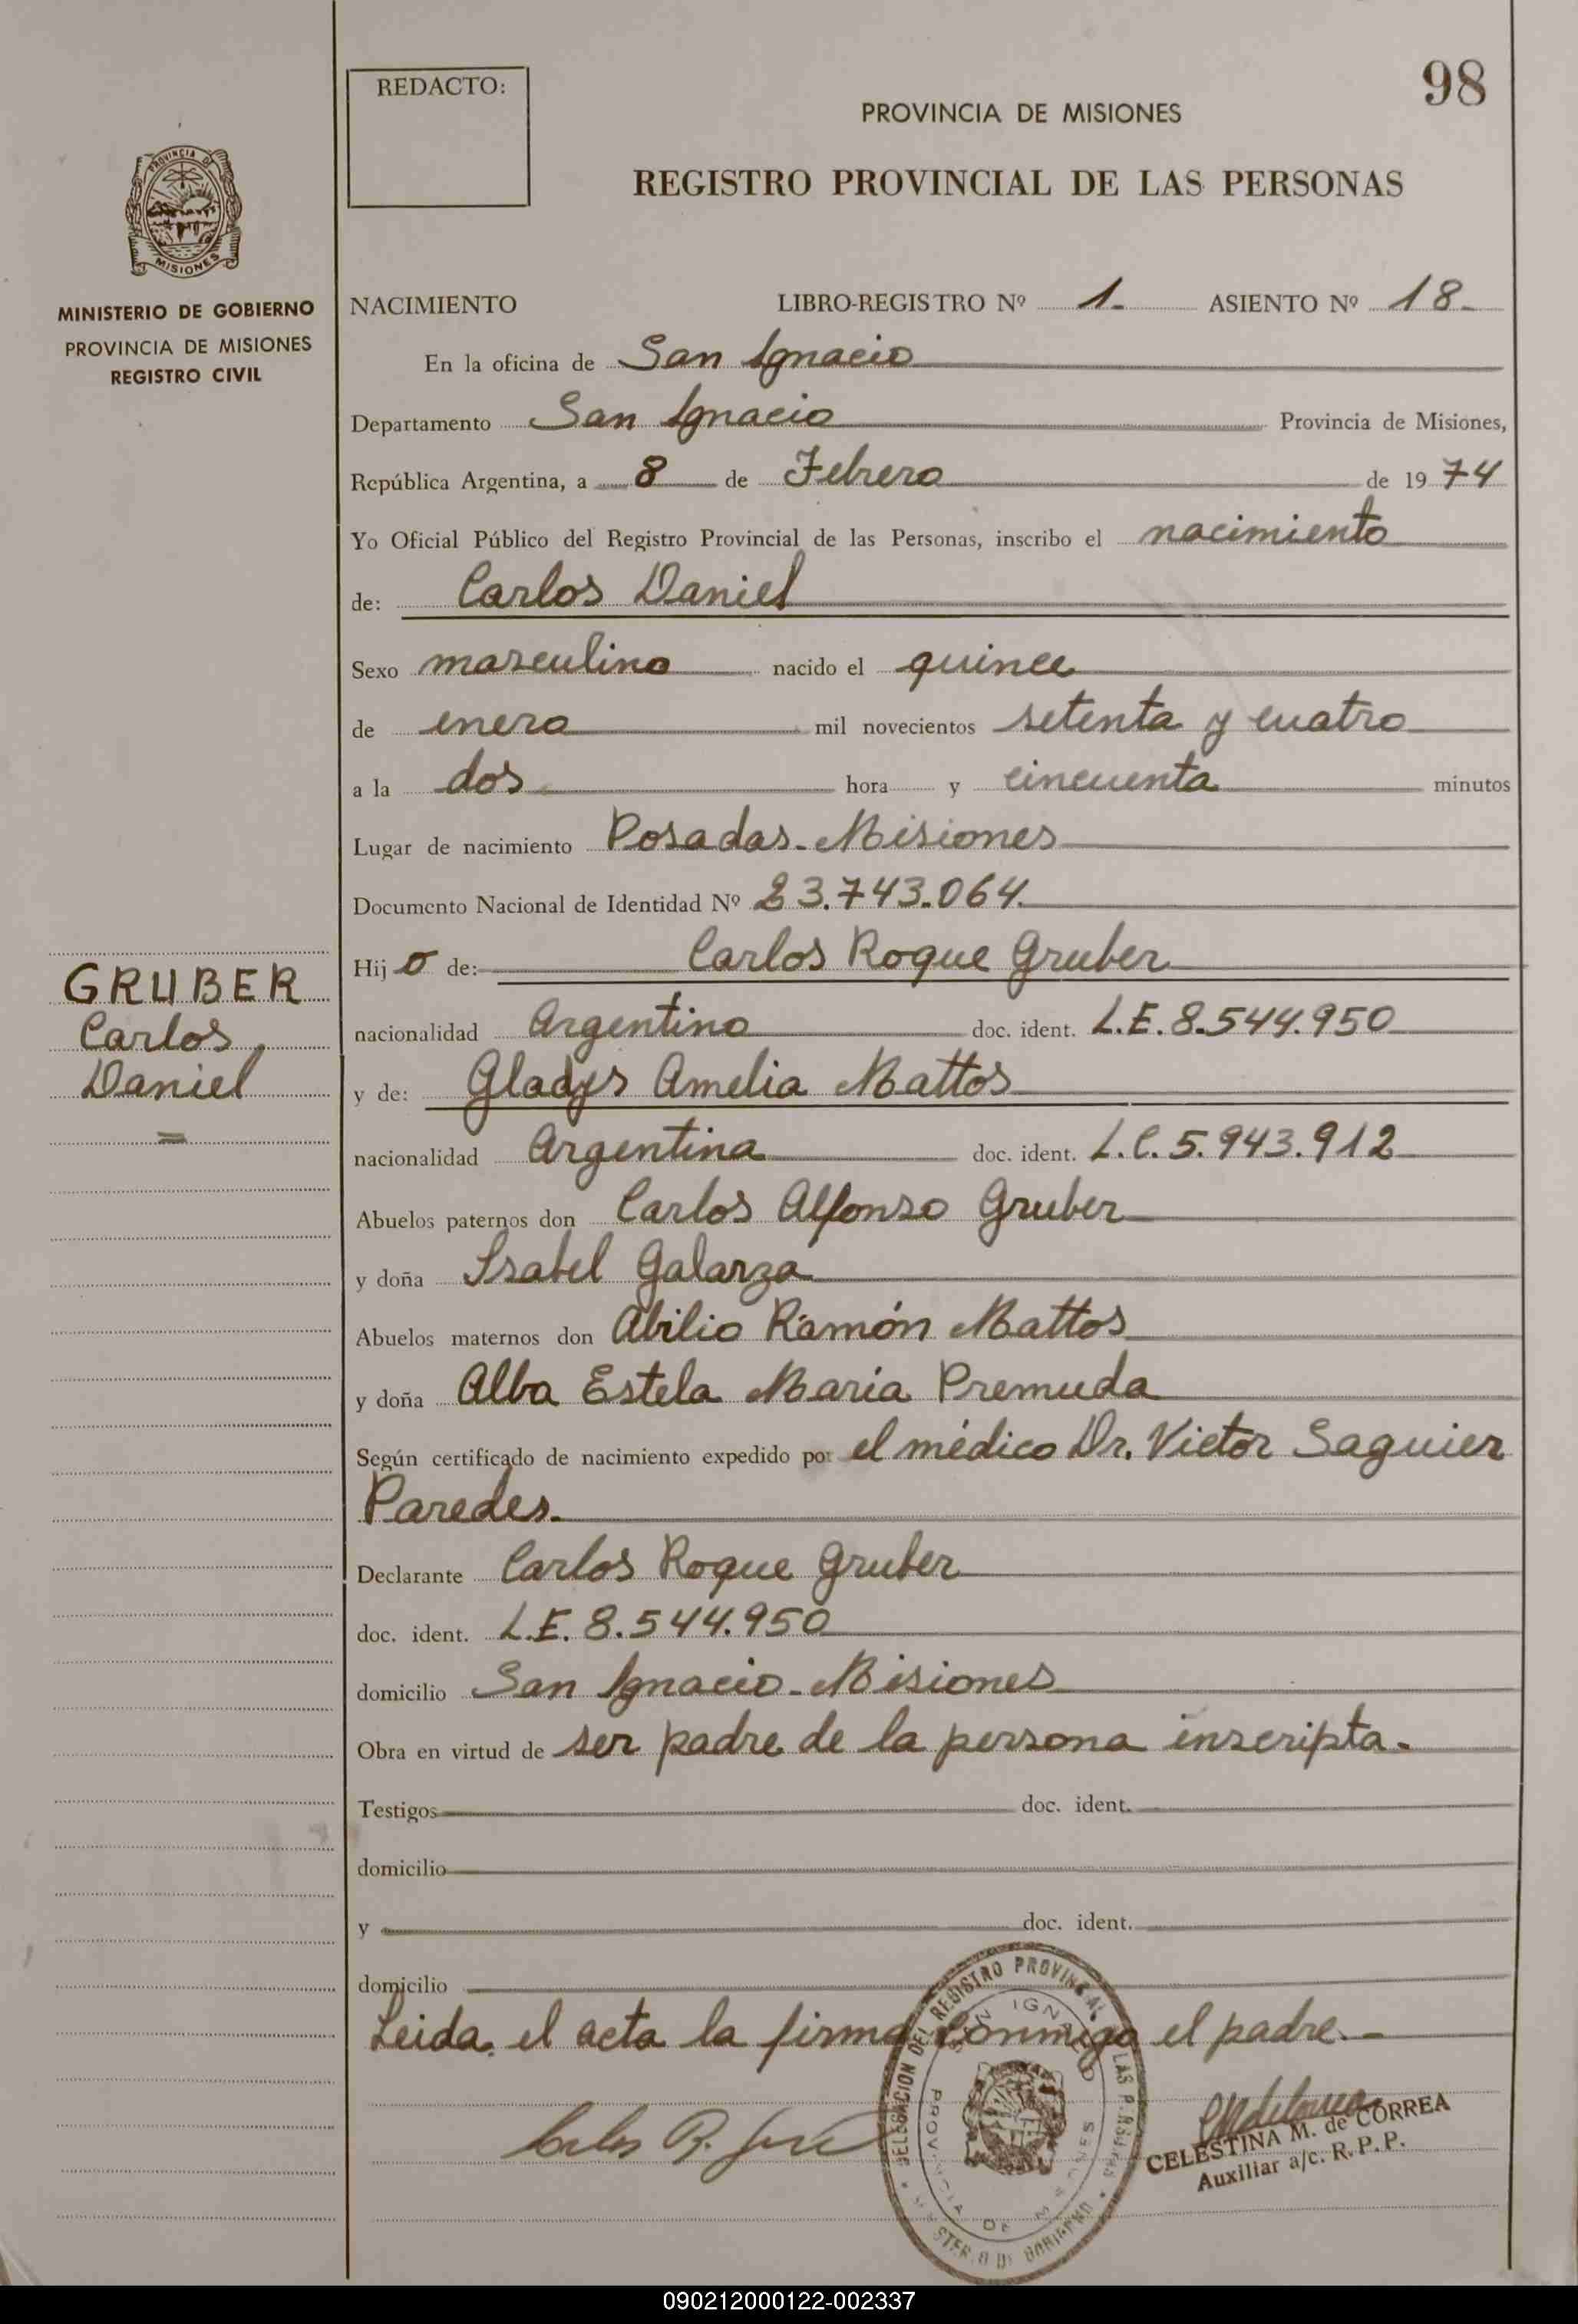 98
REDACTO:
PROVINCIA DE MISIONES
REGISTRO PROVINCIAL DE LAS PERSONAS
PROVINCIA DE
MISIONES
MINISTERIO DE GOBIERNO
PROVINCIA DE MISIONES
REGISTRO CIVIL
NACIMIENTO LIBRO-REGISTRO Nº 1. ASIENTO Nº 18.
En la oficina de San Ignacio
Departamento San Ignacio Provincia de Misiones,
República Argentina, a 8 de Febrero de 1974
Yo Oficial Público del Registro Provincial de las Personas, inscribo el nacimiento
de: Carlos Daniel
Sexo masculino nacido el quince
de enero mil novecientos setenta y cuatro
a la dos hora y cincuenta minutos
Lugar de nacimiento Posadas - Misiones
Documento Nacional de Identidad Nº 23.743.064.
GRUBER
Carlos
Daniel
Hijo de: Carlos Roque Gruber
nacionalidad Argentino doc. ident. L.E. 8.544.950
y de: Gladys Amelia Mattos
nacionalidad Argentina doc. ident. L.C. 5.943.912
Abuelos paternos don Carlos Alfonso Gruber
y doña Isabel Galarza
Abuelos maternos don Abilio Ramón Mattos
y doña Alba Estela Maria Premuda
Según certificado de nacimiento expedido por el médico Dr. Victor Saguier
Paredes.
Declarante Carlos Roque Gruber
doc. ident. L.E. 8.544.950
domicilio San Ignacio - Misiones
Obra en virtud de ser padre de la persona inscripta.
Testigos doc. ident.
domicilio
y doc. ident.
domicilio
Leida el acta la firma conmigo el padre.-
DELEGACION DEL REGISTRO PROVINCIAL LAS
SAN IGNACIO
PROVINCIA DE MISIONES
Carlos R.
CELESTINA M. de CORREA
Auxiliar a/c. R.P.P.
090212000122-002337